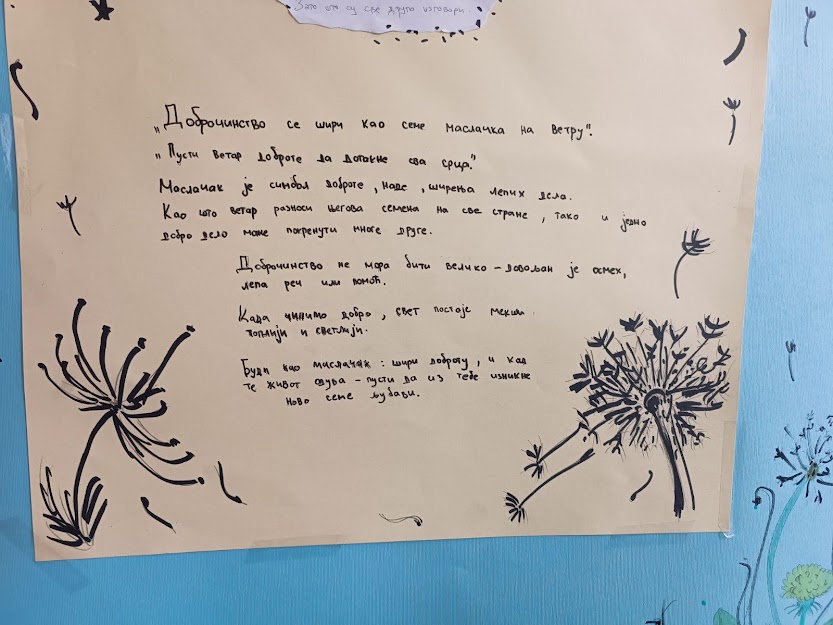 Зато што су све друго изговори.
„Доброчинство се шири као семе маслачка на ветру“.
„Пусти ветар доброте да дотакне сва срца.“
Маслачак је симбол доброте, наде, ширења лепих дела.
Као што ветар разноси његова семена на све стране, тако и једно
добро дело може покренути многе друге.
Доброчинство не мора бити велико – довољан је осмех,
лепа реч или помоћ.
Када чинимо добро, свет постаје мекши
топлији и светлији.
Буди као маслачак: шири доброту, и кад
те живот одува – пусти да из тебе изникне
ново семе љубави.